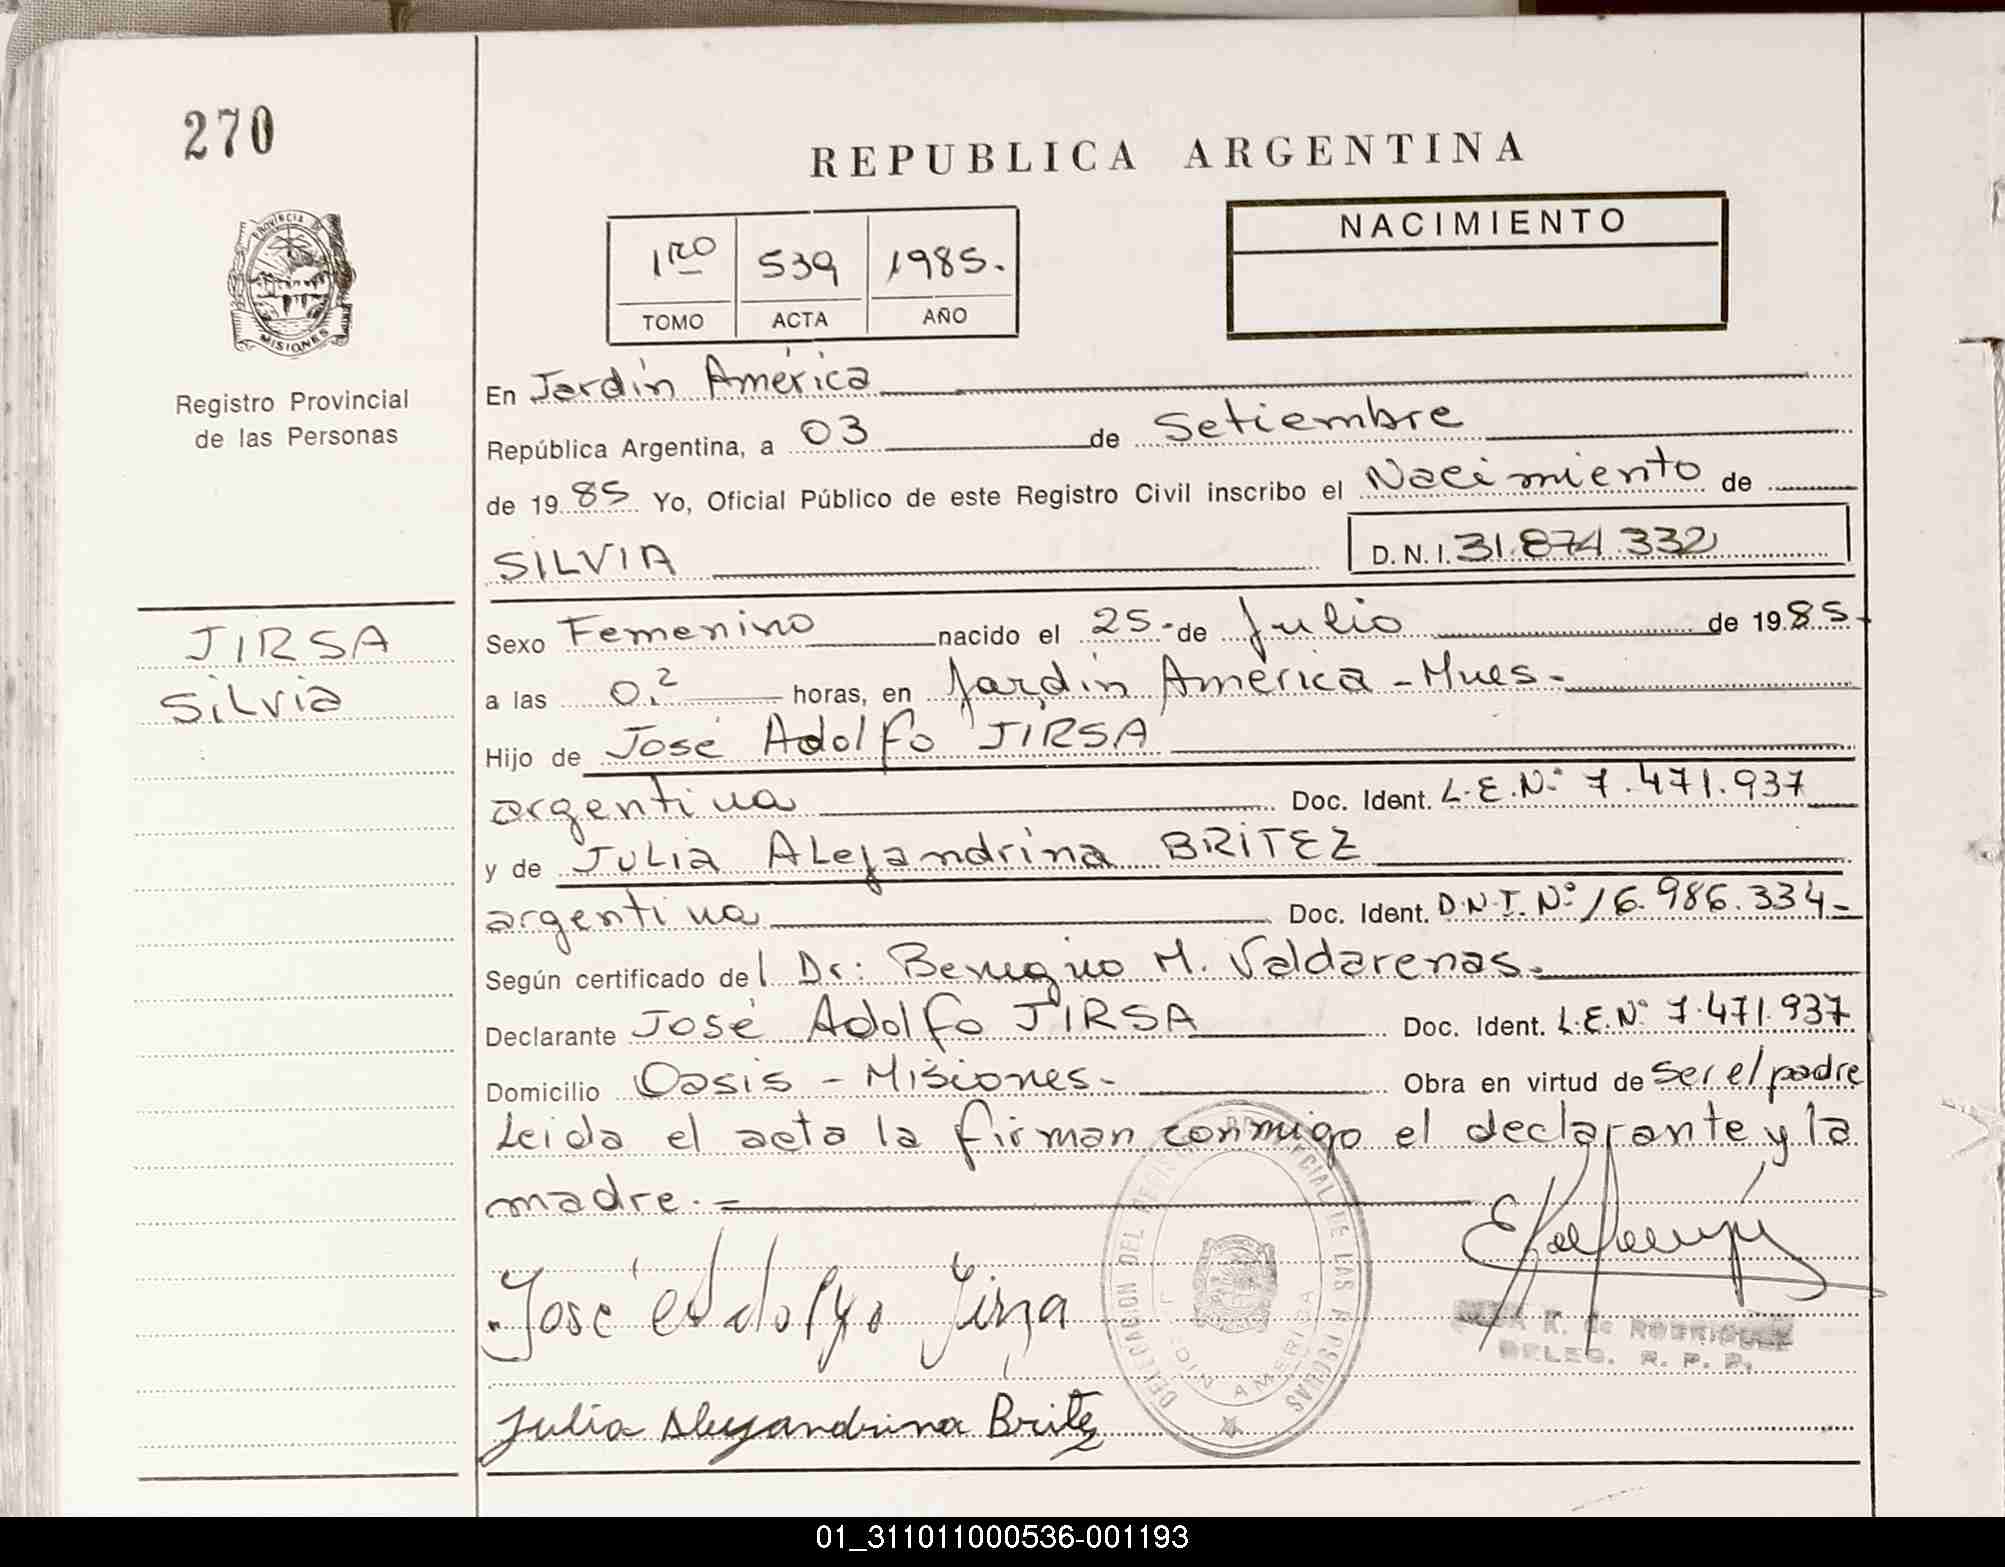 270
REPUBLICA ARGENTINA
PROVINCIA DE
MISIONES
1ro 539 1985.
TOMO ACTA AÑO
NACIMIENTO
Registro Provincial
de las Personas
En Jardín América
República Argentina, a 03 de Setiembre
de 1985 Yo, Oficial Público de este Registro Civil inscribo el Nacimiento de
SILVIA D.N.I. 31.874.332
JIRSA
Silvia
Sexo Femenino nacido el 25- de Julio de 1985-
a las 0.2 horas, en Jardín América - Mnes-
Hijo de José Adolfo JIRSA
argentina Doc. Ident. L.E.Nº 7.471.937
y de JULIA ALejandrina BRITEZ
argentina Doc. Ident. D.N.I. Nº 16.986.334-
Según certificado del Dr: Benigno M. Valdarenas.
Declarante José Adolfo JIRSA Doc. Ident. L.E.Nº 7.471.937
Domicilio Oasis - Misiones- Obra en virtud de ser el padre
Leida el acta la firman conmigo el declarante y la
madre.-
José Adolfo Jirsa
DELEGACION DEL REGISTRO PROVINCIAL DE LAS PERSONAS
AMERICA
R. de RODRIGUEZ
DELEG. R. P. P.
Julia Alejandrina Britez
01_311011000536-001193